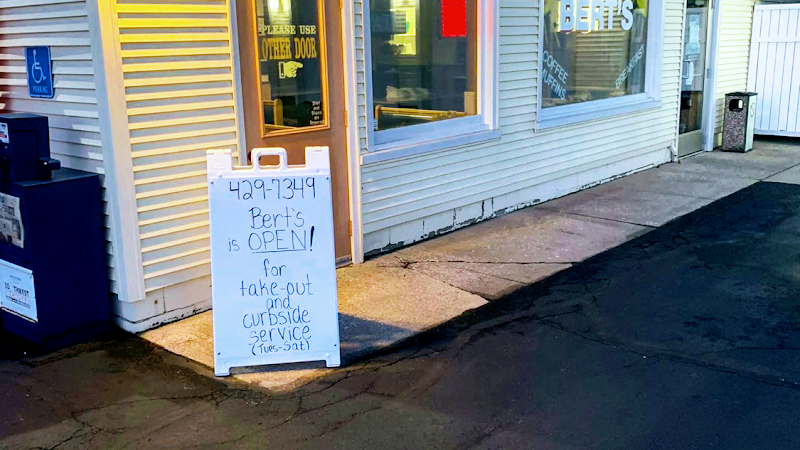 PLEASE USE
OTHER DOOR
BERT'S
COFFEE
MUFFINS
BREAKFAST
PARKING
429-7349
Bert's
is OPEN!
for
take-out
and
curbside
service
(Tues-Sat)